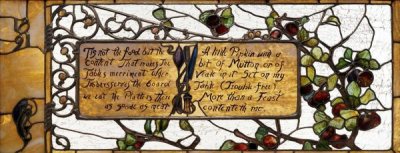 Tis not the food but the
Content That makes The
Table's merriment When
Trouble serves the Board
we eat the Platters There
as as meat
A little Pipkin with a
bit of Mutton or of
Veale in it Set on my
Table (Trouble free)
More than a Feast
contenteth me.